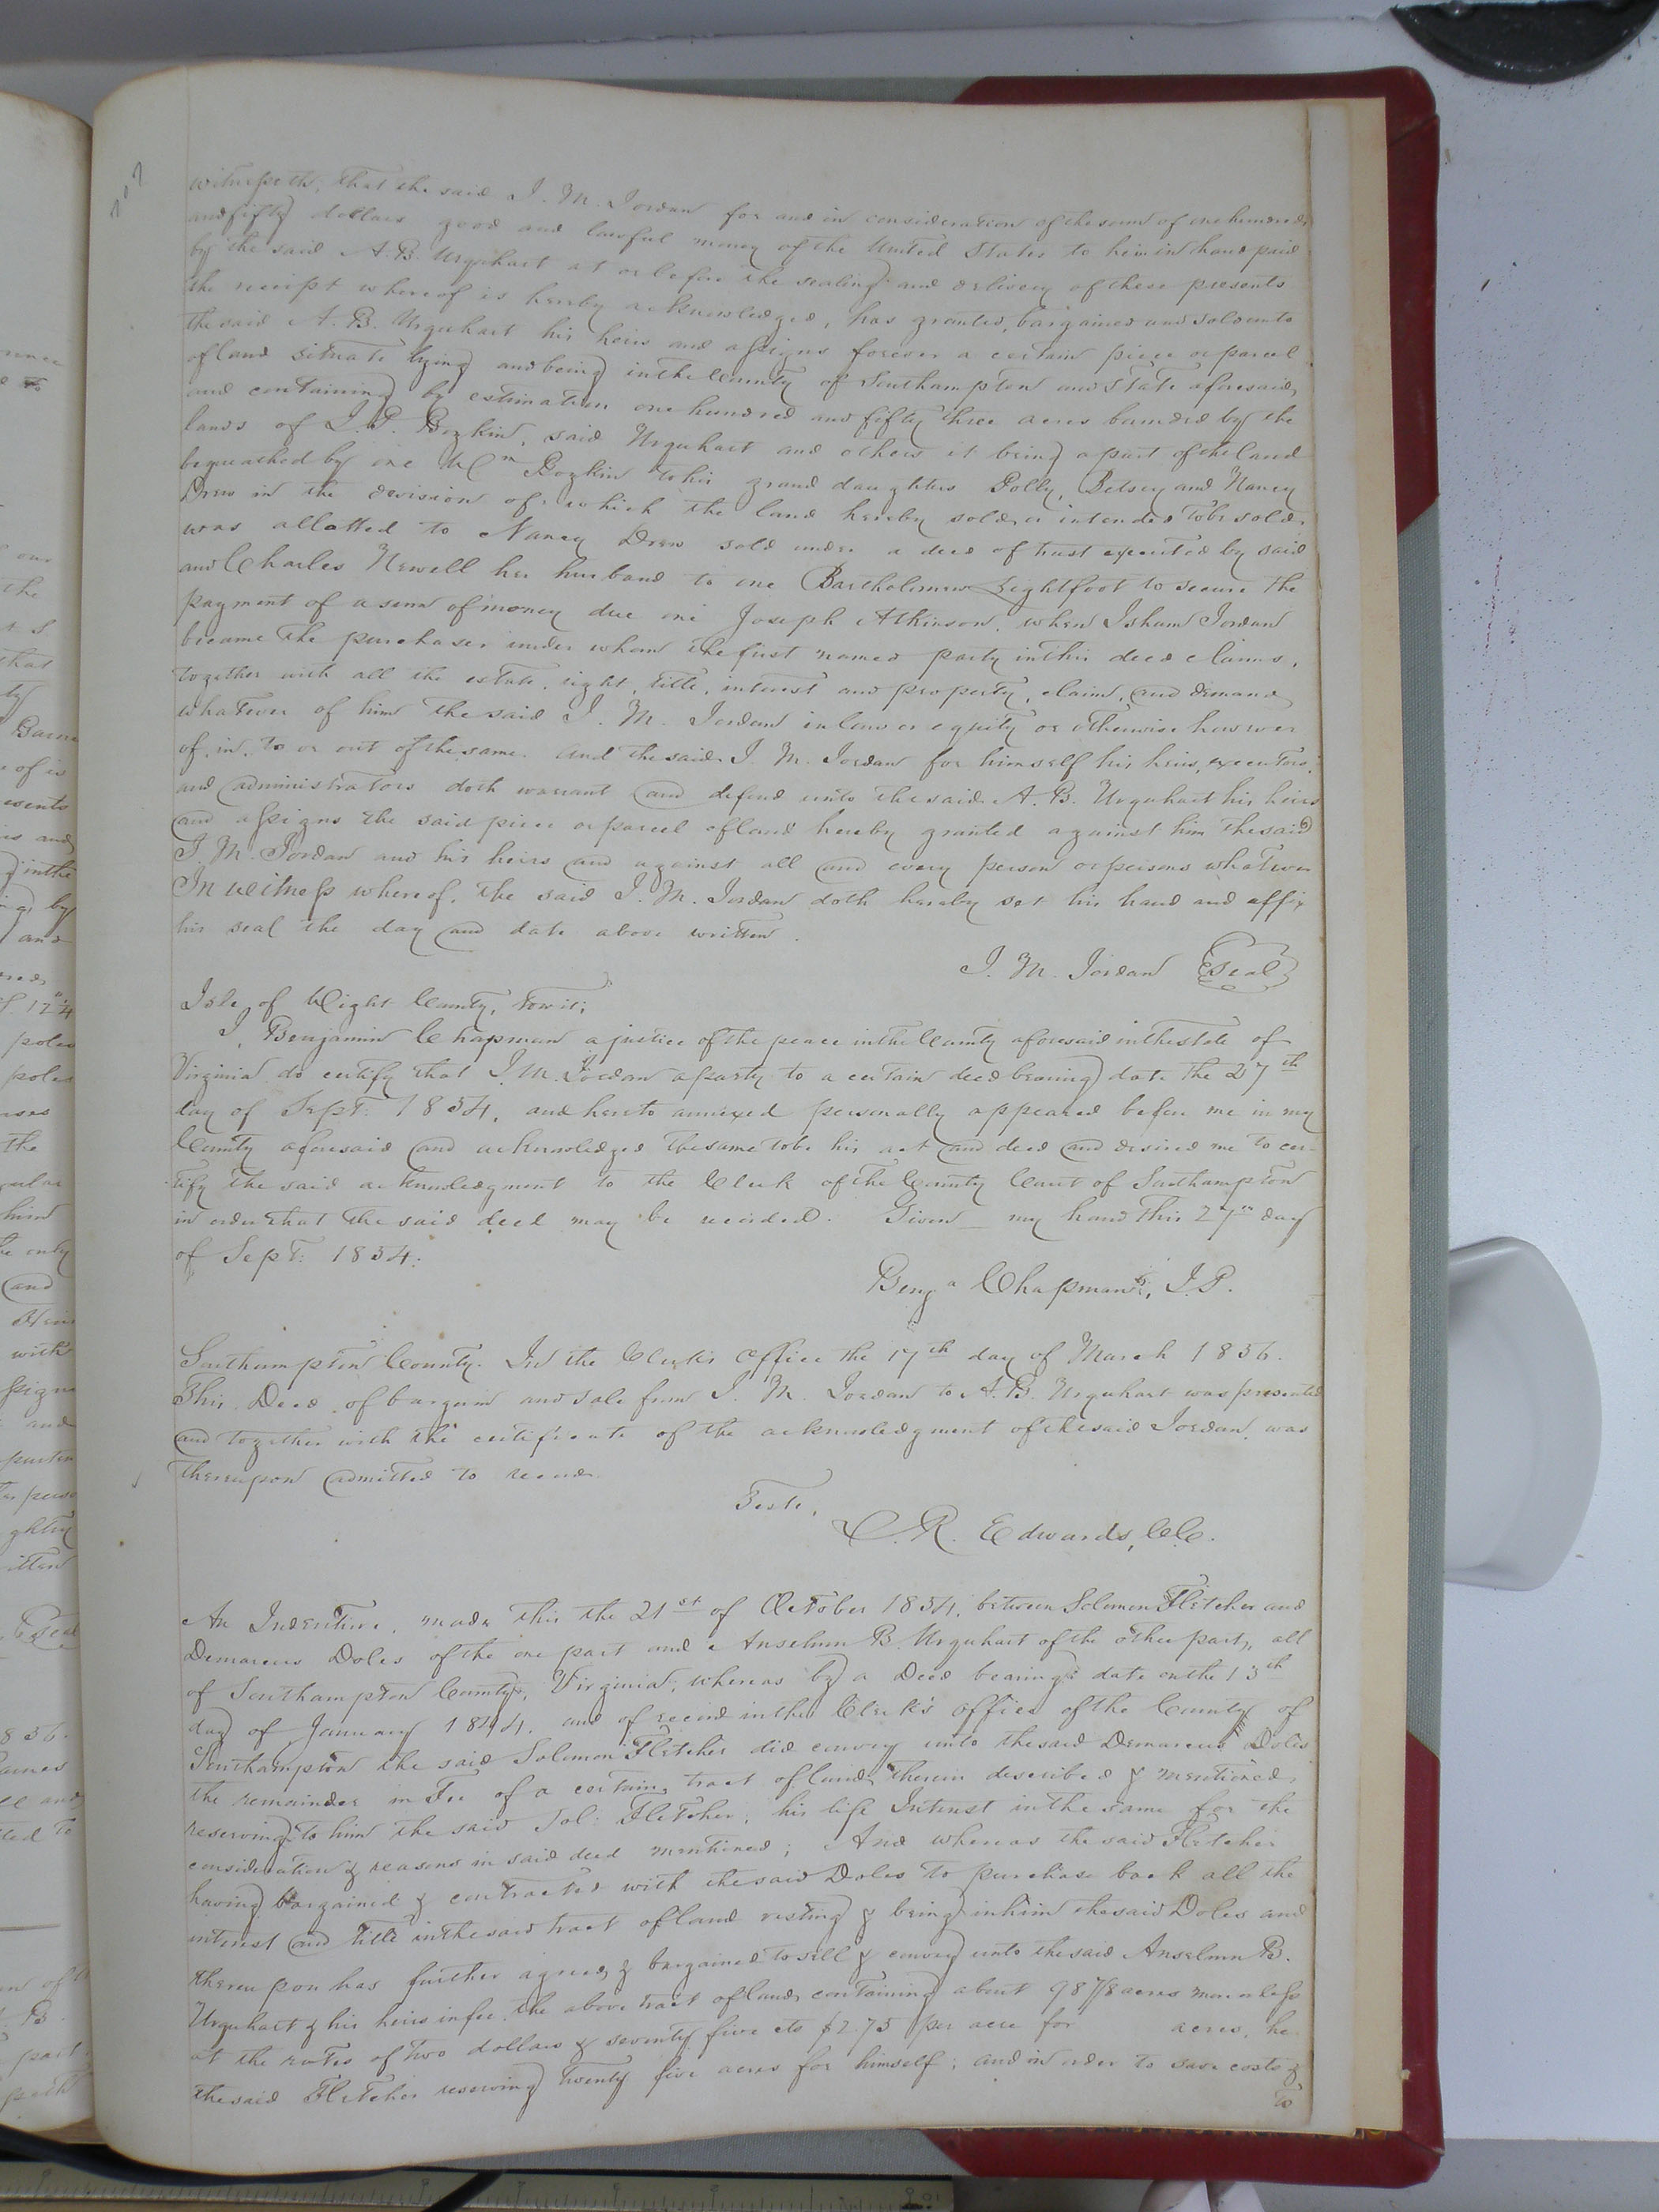 witnesseth, that the said J. M. Jordan for and in consideration of the sum of one hundred
and fifty dollars good and lawful money of the United States to him in hand paid
by the said A. B. Urquhart at or before the sealing and delivery of these presents
the receipt whereof is hereby acknowledged, has granted, bargained and sold unto
the said A. B. Urquhart his heirs and assigns forever a certain piece or parcel
of land situate lying and being in the County of Southampton and State aforesaid,
and containing by estimation one hundred and fifty three acres bounded by the
lands of J. P. Boykin, said Urquhart and others it being a part of the land
bequeathed by one Wm Boykin to his grand daughters Polly, Betsey and Nancy
Drew in the division of which the land hereby sold or intended to be sold
was allotted to Nancy Drew sold under a deed of trust executed by said
and Charles Newell her husband to one Bartholomew Lightfoot to secure the
payment of a sum of money due one Joseph Atkinson, when Isham Jordan
became the purchaser under whom the first named party in this deed claims,
together with all the estate, right, title, interest and property, claim, and demand
whatever of him the said J. M. Jordan in law or equity or otherwise however
of, in, to or out of the same. And the said J. M. Jordan for himself his heirs, executors,
and administrators doth warrant and defend unto the said A. B. Urquhart his heirs
and assigns the said piece or parcel of land hereby granted against him the said
J. M. Jordan and his heirs and against all and every person or persons whatever
In witness whereof, the said J. M. Jordan doth hereby set his hand and affix
his seal the day and date above written.
J. M. Jordan Seal
Isle of Wight County, towit;
I, Benjamin Chapman a justice of the peace in the County aforesaid in the state of
Virginia do certify that J. M. Jordan a party to a certain deed bearing date the 27th
day of Sept: 1854, and hereto annexed personally appeared before me in my
County aforesaid and acknowledged the same to be his act and deed and desired me to cer-
tify the said acknowledgment to the Clerk of the County Court of Southampton
in order that the said deed may be recorded. Given my hand this 27th day
of Sept: 1854.
Benja Chapman, J.P.
Southampton County. In the Clerk's Office the 17th day of March 1856.
This Deed of bargain and sale from J. M. Jordan to A. B. Urquhart was presented
and together with the certificate of the acknowledgment of the said Jordan, was
thereupon admitted to record.
Teste,
L. R. Edwards, C.C.
An Indenture, made this the 21st of October 1854, between Solomon Fletcher and
Demarcus Doles of the one part and Anselmn B. Urquhart of the other part, all
of Southampton County, Virginia; whereas by a Deed bearing date on the 13th
day of January 1844, and of record in the Clerk's office of the County of
Southampton the said Solomon Fletcher did convey unto the said Demarcus Doles
the remainder in Fee of a certain tract of land, therein described & mentioned,
reserving to him the said Sol: Fletcher, his life Interest in the same for the
consideration & reasons in said deed mentioned; And whereas the said Fletcher
having bargained & contracted with the said Doles to purchase back all the
interest and title in the said tract of land resting & being in him the said Doles and
thereupon has further agreed & bargained to sell & convey unto the said Anselmn B.
Urquhart & his heirs in fee, the above tract of land, containing about 98 7/8 acres more or less
at the rates of two dollars & seventy five cts $2.75 per acre for acres, he
the said Fletcher reserving twenty five acres for himself; and in order to save costs &
to